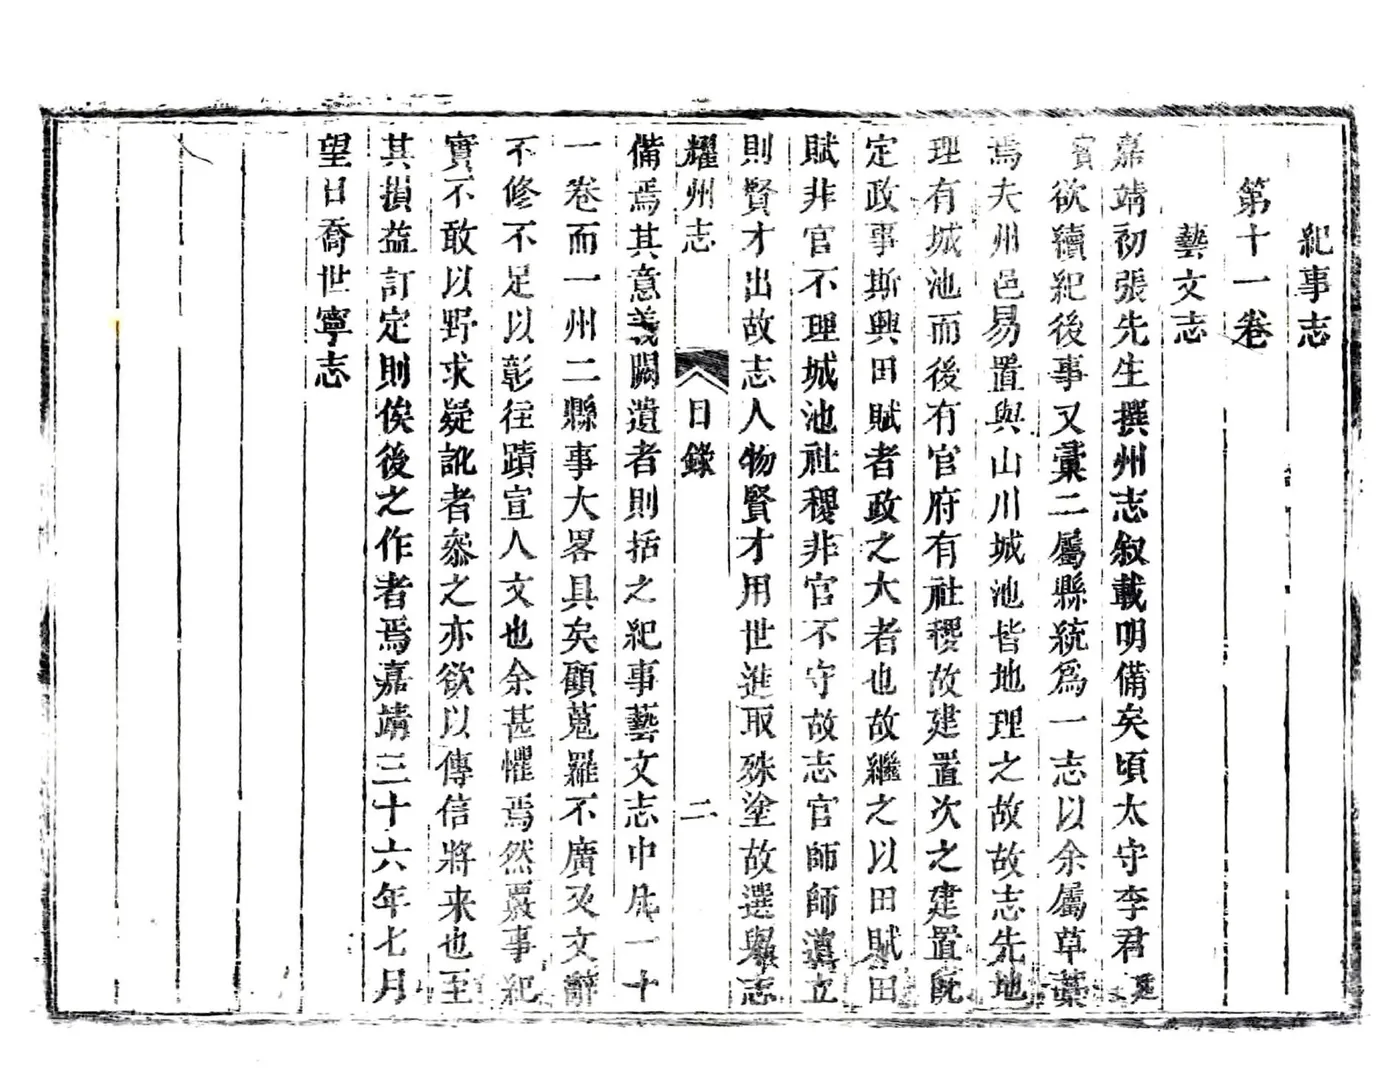 紀事志
第十一卷
藝文志
嘉靖初張先生撰州志叙載明備矣頃太守李君廷
寳欲續紀後事又彙二屬縣統爲一志以余屬草藁
焉夫州邑易置與山川城池皆地理之故故志先地
理有城池而後有官府有社稷故建置次之建置既
定政事斯興田賦者政之大者也故繼之以田賦田
賦非官不理城池社稷非官不守故志官師師道立
則賢才出故志人物賢才用世進取殊塗故選舉志
耀州志
目錄
二
備焉其意義闕遺者則括之紀事藝文志中凡一十
一卷而一州二縣事大畧具矣顧蒐羅不廣又文辭
不修不足以彰往蹟宣人文也余甚懼焉然覈事紀
實不敢以野求疑訛者叅之亦欲以傳信將来也至
其損益訂定則俟後之作者焉嘉靖三十六年七月
望日喬世寧志